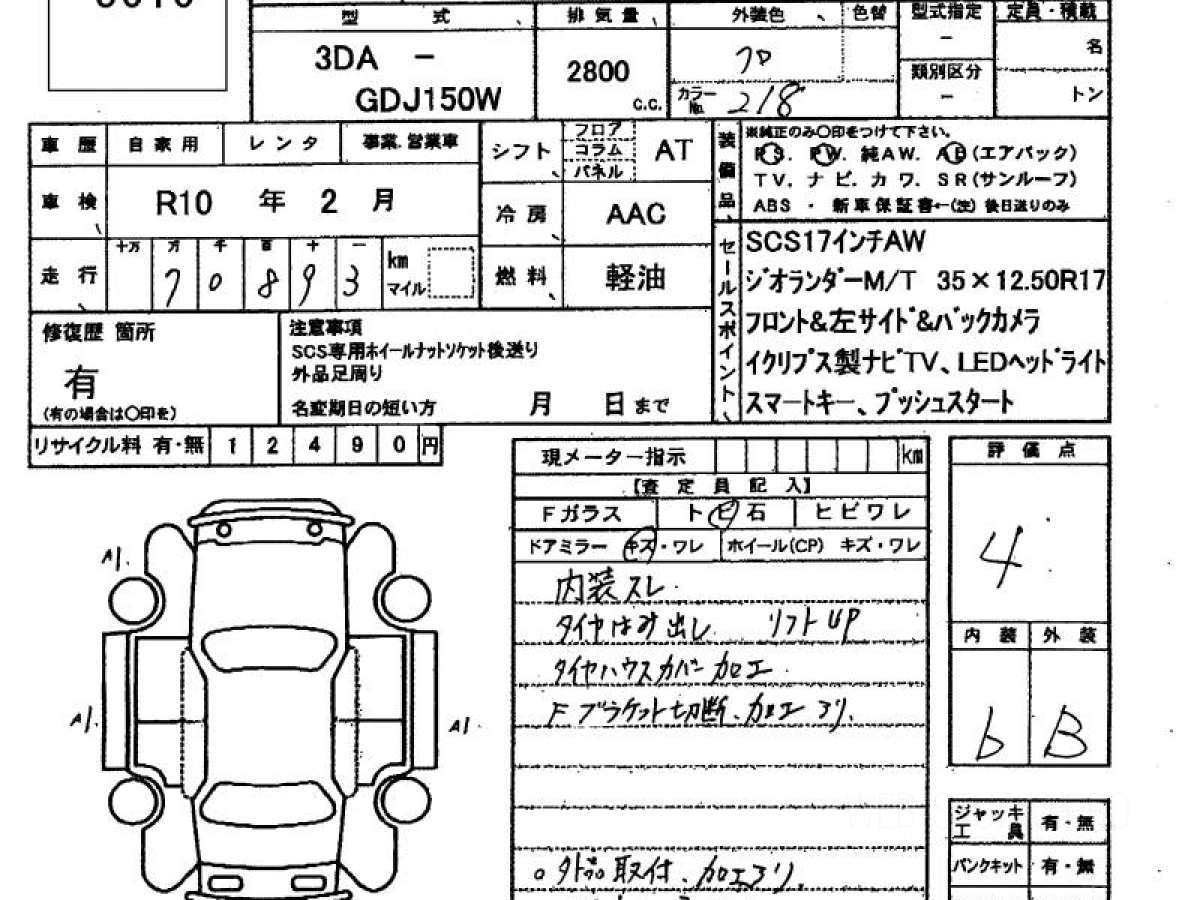 型 式 排気量 外装色 色替 型式指定 定員・積載
3DA － クロ － 名
2800 類別区分
GDJ150W C.C. カラーNo. 218 － トン
車歴 自家用 レンタ 事業.営業車 シフト フロア コラム パネル AT
車検 R10 年 2 月 冷房 AAC
走行 十万 万 千 百 十 一 km マイル 燃料 軽油
7 0 8 9 3
装備品
※純正のみ〇印をつけて下さい。
PS. PW. 純AW. AB(エアバック)
TV. ナビ. カワ. SR(サンルーフ)
ABS ・ 新車保証書←(注) 後日送りのみ
セールスポイント
SCS17インチAW
ジオランダーM/T 35×12.50R17
フロント&左サイド&バックカメラ
イクリプス製ナビTV、LEDヘッドライト
スマートキー、プッシュスタート
修復歴 箇所
有
(有の場合は〇印を)
注意事項
SCS専用ホイールナットソケット後送り
外品足周り
名変期日の短い方 月 日まで
リサイクル料 有・無 1 2 4 9 0 円
現メーター指示 km
【査定員記入】
Fガラス トビ石 ヒビワレ
ドアミラー キズ・ワレ ホイール(CP) キズ・ワレ
内装スレ.
タイヤはみ出し リフトUP
タイヤハウスカバー加工
Fブラケット切断、加工アリ.
取付、加工アリ.
評価点
4
内装 外装
b B
A1.
A1.
A1.
ジャッキ工具 有・無
パンクキット 有・無